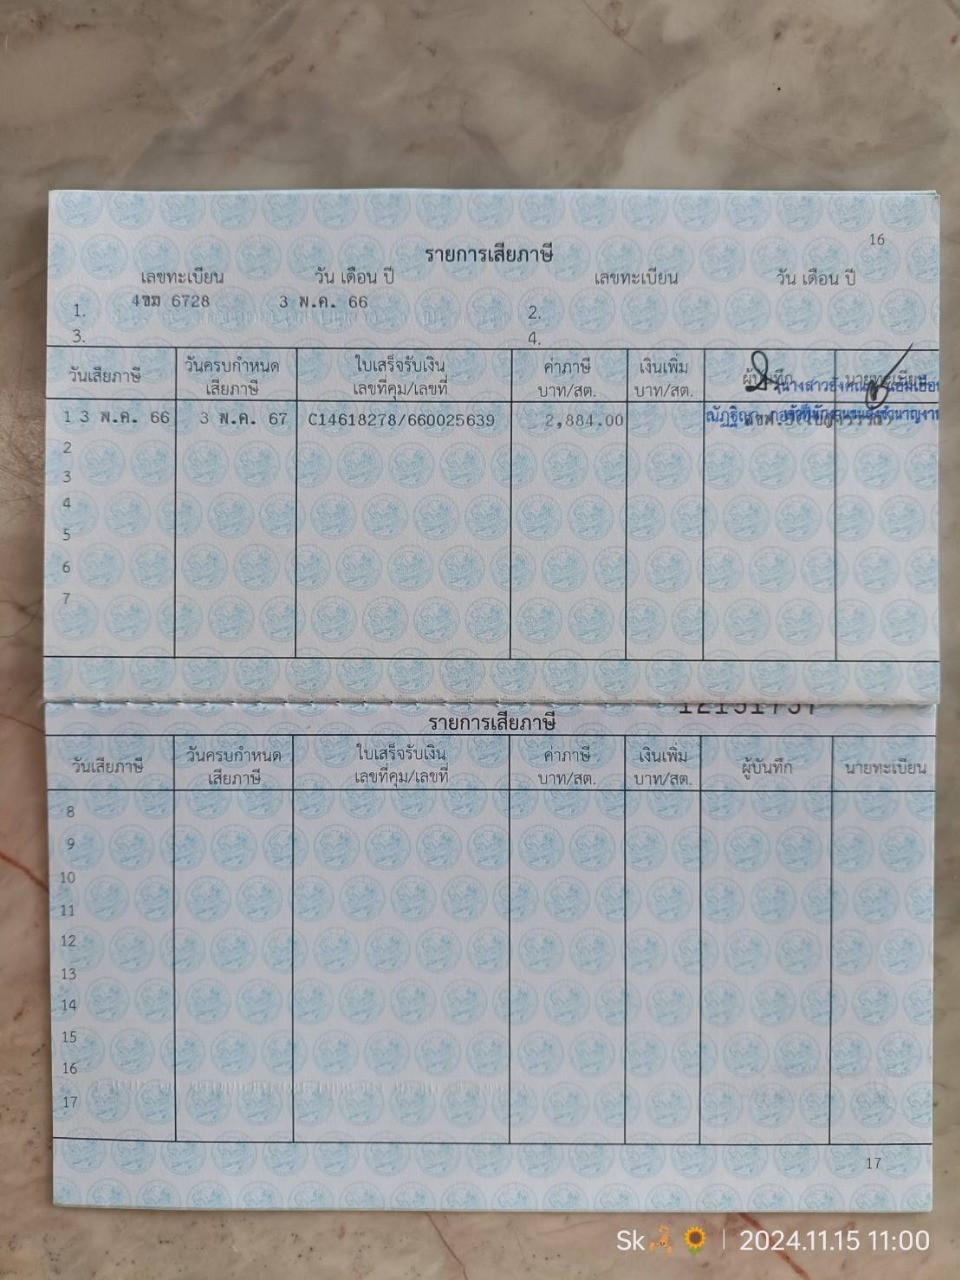 16
รายการเสียภาษี
เลขทะเบียน วัน เดือน ปี เลขทะเบียน วัน เดือน ปี
1. 4ขม 6728 3 พ.ค. 66 2.
3. 4.
วันเสียภาษี วันครบกำหนดเสียภาษี ใบเสร็จรับเงิน เลขที่คุม/เลขที่ ค่าภาษี บาท/สต. เงินเพิ่ม บาท/สต. ผู้บันทึก นายทะเบียน
1 3 พ.ค. 66 3 พ.ค. 67 C14618278/660025639 2,884.00
2
3
4
5
6
7
รายการเสียภาษี
วันเสียภาษี วันครบกำหนดเสียภาษี ใบเสร็จรับเงิน เลขที่คุม/เลขที่ ค่าภาษี บาท/สต. เงินเพิ่ม บาท/สต. ผู้บันทึก นายทะเบียน
8
9
10
11
12
13
14
15
16
17
17
Sk 2024.11.15 11:00